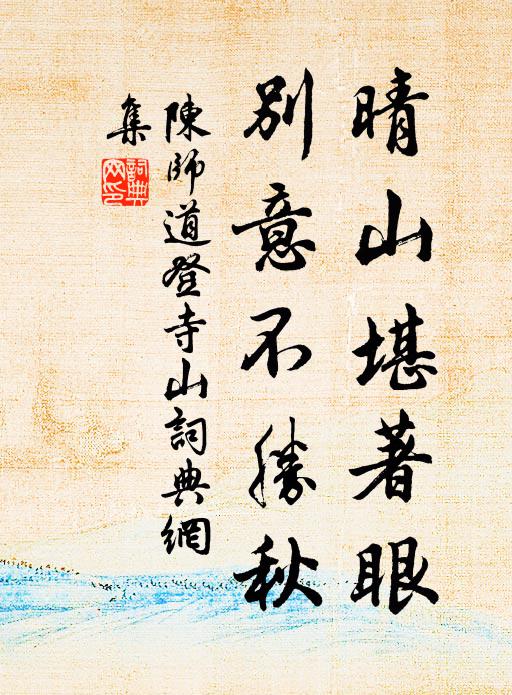 晴山堪著眼
別意不勝秋
陳師道登寺山詞典網
集
詞典網印